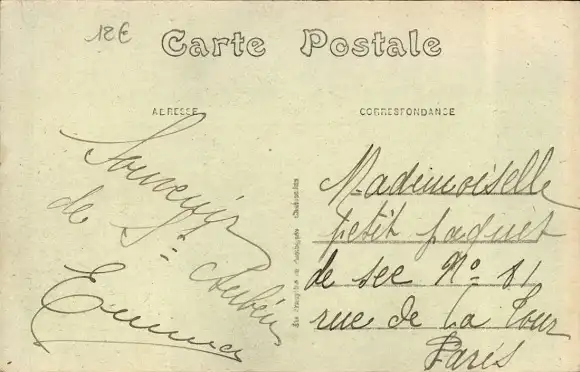 12€
Carte Postale
ADRESSE
CORRESPONDANCE
Souvenir
de St Aubin
Emma
Mademoiselle
petit paquet
de sec No 81
rue de la Tour
Paris